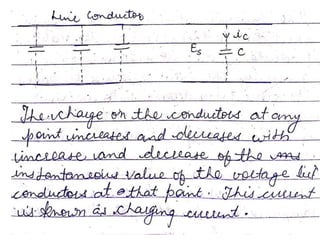 Line Conductor
ic
Es
C
The charge on the conductors at any
point increases and decreases with
increase and decrease of the
instantaneous value of the voltage bet
conductors at that point. This current
is known as charging current.